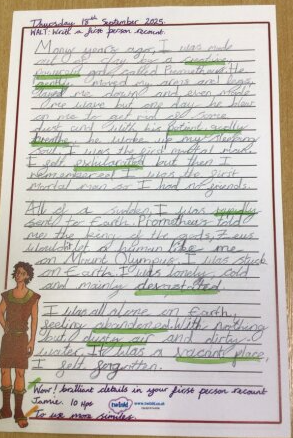 Thursday 18th September 2025.
WALT: Write a first person recount.
Many years ago, I was made
out of clay by a creative
powerful god called Prometheus. He
gently moved my arms and legs,
me down and even made
me wave but one day he blew
on me to get rid of some
dust and with his potent, godly
breath, he woke up my sleeping
soul. I was the first mortal man.
I felt exhilarated but then I
remembered I was the first
mortal man so I had no friends.
All of a sudden, I was rapidly
sent to Earth. Prometheus told
me the king of the gods, Zeus
would a human like me
on Mount Olympus. I was stuck
on Earth. I was lonely, cold
and mainly devastated.
I was all alone on Earth,
feeling abandoned. With nothing
but dusty air and dirty
water. It was a vacant place,
I felt forgotten.
Wow! brilliant details in your first person recount
Jamie. 10 Hps
To use more similes.
twinkl
www.twinkl.co.uk